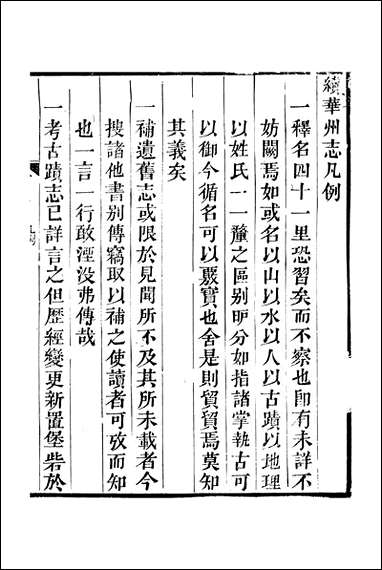 續華州志凡例
一釋名四十一里恐習矣而不察也卽有未詳不
妨闕焉如或名以山以水以人以古蹟以地理
以姓氏一一釐之區别昈分如指諸掌執古可
以御今循名可以覈實也舍是則貿貿焉莫知
其義矣
一補遺舊志或限於見聞所不及其所未載者今
搜諸他書别傳竊取以補之使讀者可攷而知
也一言一行敢湮没弗傳哉
一考古蹟志已詳言之但歷經變更新置堡砦於